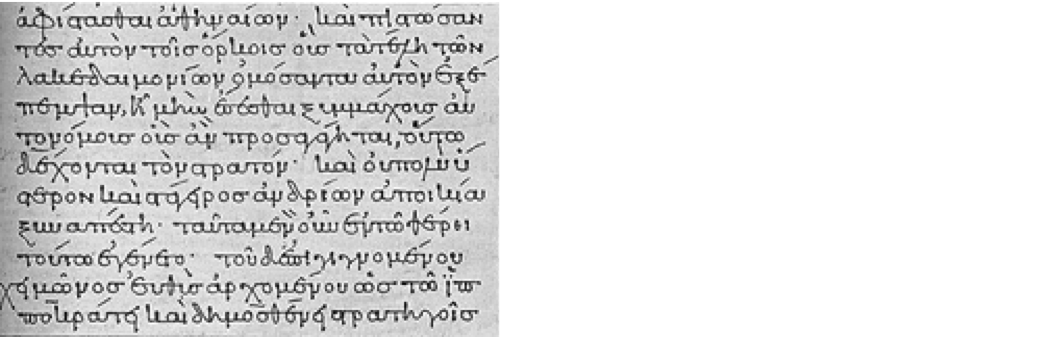 ἀφίστασθαι ἀθηναίων· καὶ πιστώσαν
τεσ αὐτὸν τοῖσ ὅρκοισ οὓσ τὰ τέλη τῶν
λακεδαιμονίων ὀμόσαντα αὐτὸν ἐξέ
πεμψαν, ἦ μὴν ἔσεσθαι ξυμμάχουσ αὐ
τονόμουσ οὓσ ἂν προσαγάγηται, οὕτω
δέχονται τὸν στρατόν· καὶ οὐ πολὺ ὕ
στερον καὶ στάγειροσ ἀνδρίων ἀποικία
ξυναπέστη· ταῦτα μὲν οὖν ἐν τῶ θέρει
τούτω ἐγένετο· τοῦ δ' ἐπιγιγνομένου
χειμῶνοσ εὐθὺσ ἀρχομένου ὡσ τῶ ἱπ
ποκράτει καὶ δημοσθένει στρατηγοῖσ